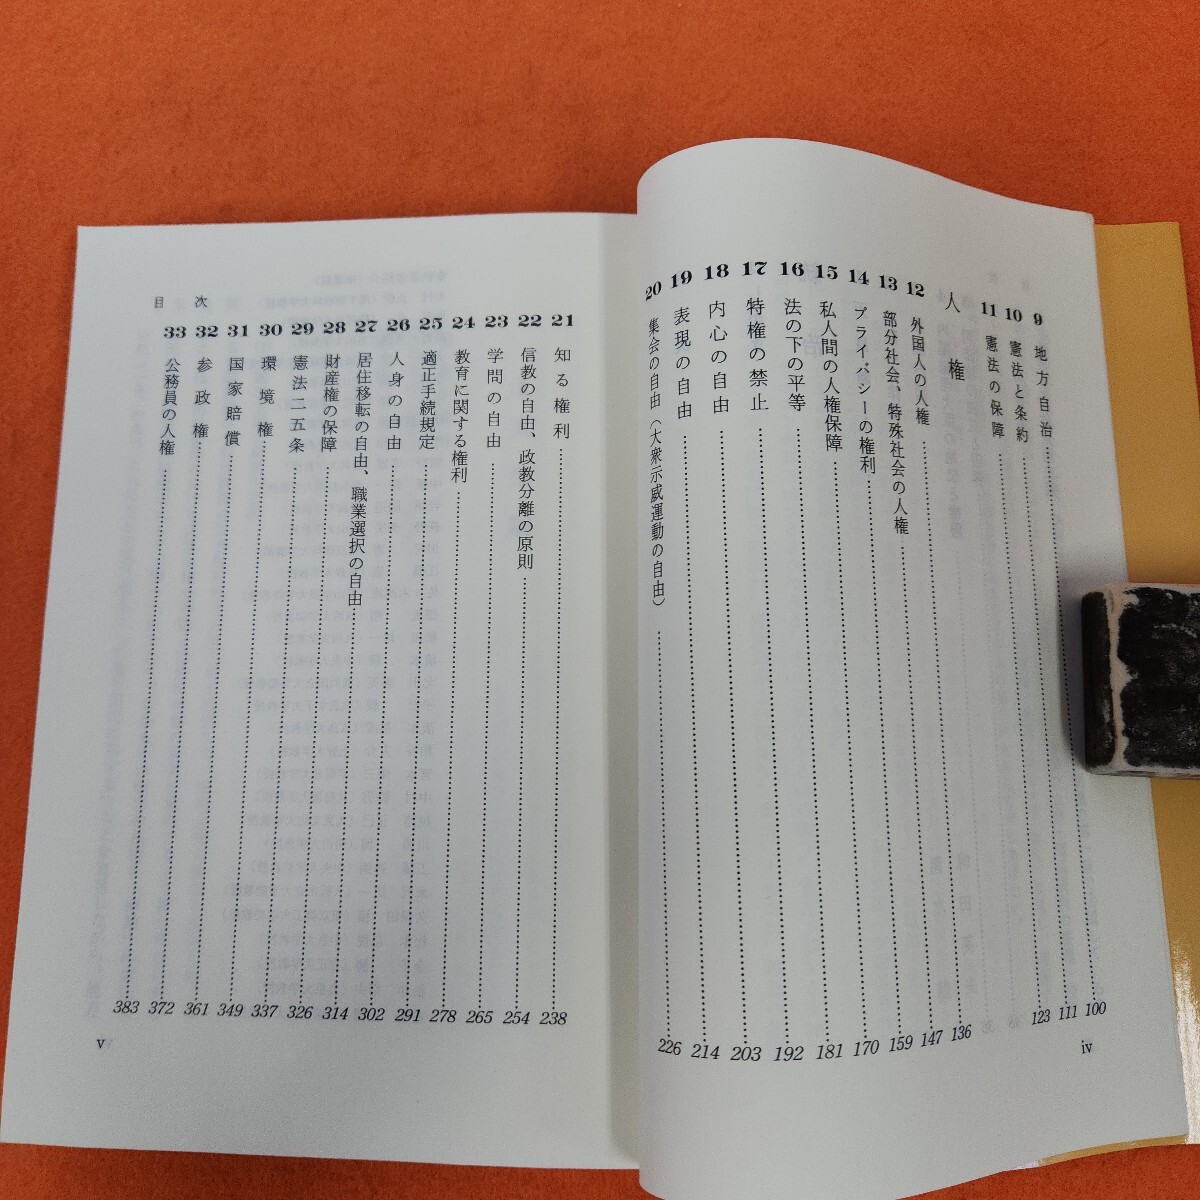 9 地方自治……100
10 憲法と条約……111
11 憲法の保障……123
人権
12 外国人の人権……136
13 部分社会、特殊社会の人権……147
14 プライバシーの権利……159
15 私人間の人権保障……170
16 法の下の平等……181
17 特権の禁止……192
18 内心の自由……203
19 表現の自由……214
20 集会の自由（大衆示威運動の自由）……226
iv
21 知る権利……238
22 信教の自由、政教分離の原則……254
23 学問の自由……265
24 教育に関する権利……278
25 適正手続規定……291
26 人身の自由……302
27 居住移転の自由、職業選択の自由……314
28 財産権の保障……326
29 憲法二五条……337
30 環境権……349
31 国家賠償……361
32 参政権……372
33 公務員の人権……383
目次
v